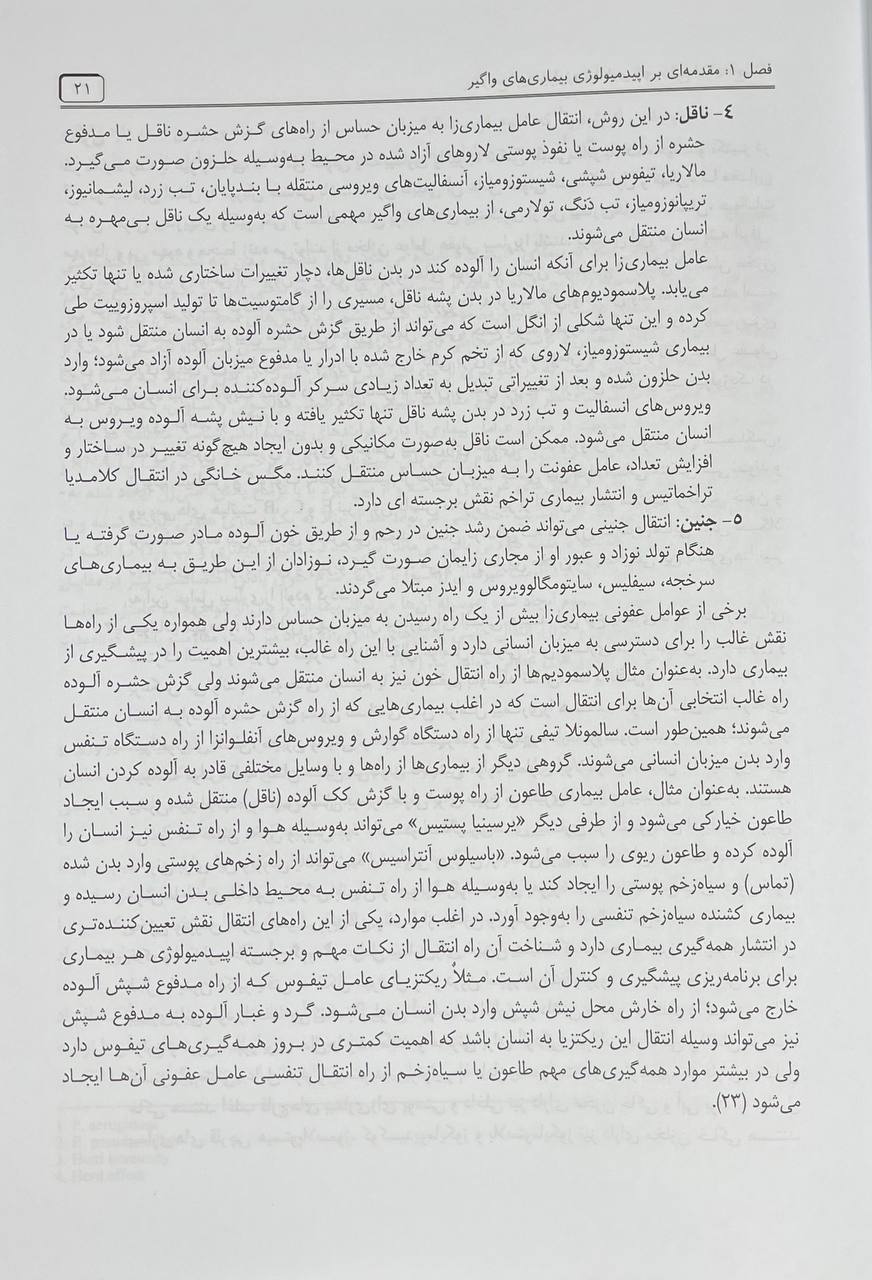 فصل ۱: مقدمه‌ای بر اپیدمیولوژی بیماری‌های واگیر
۲۱
۴- ناقل: در این روش، انتقال عامل بیماری‌زا به میزبان حساس از راه‌های گزش حشره ناقل یا مدفوع
حشره از راه پوست یا نفوذ پوستی لاروهای آزاد شده در محیط به‌وسیله حلزون صورت می‌گیرد.
مالاریا، تیفوس شپشی، شیستوزومیاز، آنسفالیت‌های ویروسی منتقله با بندپایان، تب زرد، لیشمانیوز،
تریپانوزومیاز، تب دَنگ، تولارمی، از بیماری‌های واگیر مهمی است که به‌وسیله یک ناقل بی‌مهره به
انسان منتقل می‌شوند.
عامل بیماری‌زا برای آنکه انسان را آلوده کند در بدن ناقل‌ها، دچار تغییرات ساختاری شده یا تنها تکثیر
می‌یابد. پلاسمودیوم‌های مالاریا در بدن پشه ناقل، مسیری را از گامتوسیت‌ها تا تولید اسپروزوییت طی
کرده و این تنها شکلی از انگل است که می‌تواند از طریق گزش حشره آلوده به انسان منتقل شود یا در
بیماری شیستوزومیاز، لاروی که از تخم کرم خارج شده با ادرار یا مدفوع میزبان آلوده آزاد می‌شود؛ وارد
بدن حلزون شده و بعد از تغییراتی تبدیل به تعداد زیادی سرکر آلوده‌کننده برای انسان می‌شود.
ویروس‌های انسفالیت و تب زرد در بدن پشه ناقل تنها تکثیر یافته و با نیش پشه آلوده ویروس به
انسان منتقل می‌شود. ممکن است ناقل به‌صورت مکانیکی و بدون ایجاد هیچ‌گونه تغییر در ساختار و
افزایش تعداد، عامل عفونت را به میزبان حساس منتقل کنند. مگس خانگی در انتقال کلامدیا
تراخماتیس و انتشار بیماری تراخم نقش برجسته ای دارد.
۵- جنین: انتقال جنینی می‌تواند ضمن رشد جنین در رحم و از طریق خون آلوده مادر صورت گرفته یا
هنگام تولد نوزاد و عبور او از مجاری زایمان صورت گیرد، نوزادان از این طریق به بیماری‌های
سرخجه، سیفلیس، سایتومگالوویروس و ایدز مبتلا می‌گردند.
برخی از عوامل عفونی بیماری‌زا بیش از یک راه رسیدن به میزبان حساس دارند ولی همواره یکی از راه‌ها
نقش غالب را برای دسترسی به میزبان انسانی دارد و آشنایی با این راه غالب، بیشترین اهمیت را در پیشگیری از
بیماری دارد. به‌عنوان مثال پلاسمودیم‌ها از راه انتقال خون نیز به انسان منتقل می‌شوند ولی گزش حشره آلوده
راه غالب انتخابی آن‌ها برای انتقال است که در اغلب بیماری‌هایی که از راه گزش حشره آلوده به انسان منتقل
می‌شوند؛ همین‌طور است. سالمونلا تیفی تنها از راه دستگاه گوارش و ویروس‌های آنفلوانزا از راه دستگاه تنفس
وارد بدن میزبان انسانی می‌شوند. گروهی دیگر از بیماری‌ها از راه‌ها و با وسایل مختلفی قادر به آلوده کردن انسان
هستند. به‌عنوان مثال، عامل بیماری طاعون از راه پوست و با گزش کک آلوده (ناقل) منتقل شده و سبب ایجاد
طاعون خیارکی می‌شود و از طرفی دیگر «یرسینیا پستیس» می‌تواند به‌وسیله هوا و از راه تنفس نیز انسان را
آلوده کرده و طاعون ریوی را سبب می‌شود. «باسیلوس آنتراسیس» می‌تواند از راه زخم‌های پوستی وارد بدن شده
(تماس) و سیاه‌زخم پوستی را ایجاد کند یا به‌وسیله هوا از راه تنفس به محیط داخلی بدن انسان رسیده و
بیماری کشنده سیاه‌زخم تنفسی را به‌وجود آورد. در اغلب موارد، یکی از این راه‌های انتقال نقش تعیین‌کننده‌تری
در انتشار همه‌گیری بیماری دارد و شناخت آن راه انتقال از نکات مهم و برجسته اپیدمیولوژی هر بیماری
برای برنامه‌ریزی پیشگیری و کنترل آن است. مثلاً ریکتزیای عامل تیفوس که از راه مدفوع شپش آلوده
خارج می‌شود؛ از راه خارش محل نیش شپش وارد بدن انسان می‌شود. گرد و غبار آلوده به مدفوع شپش
نیز می‌تواند وسیله انتقال این ریکتزیا به انسان باشد که اهمیت کمتری در بروز همه‌گیری‌های تیفوس دارد
ولی در بیشتر موارد همه‌گیری‌های مهم طاعون یا سیاه‌زخم از راه انتقال تنفسی عامل عفونی آن‌ها ایجاد
می‌شود (۲۳).